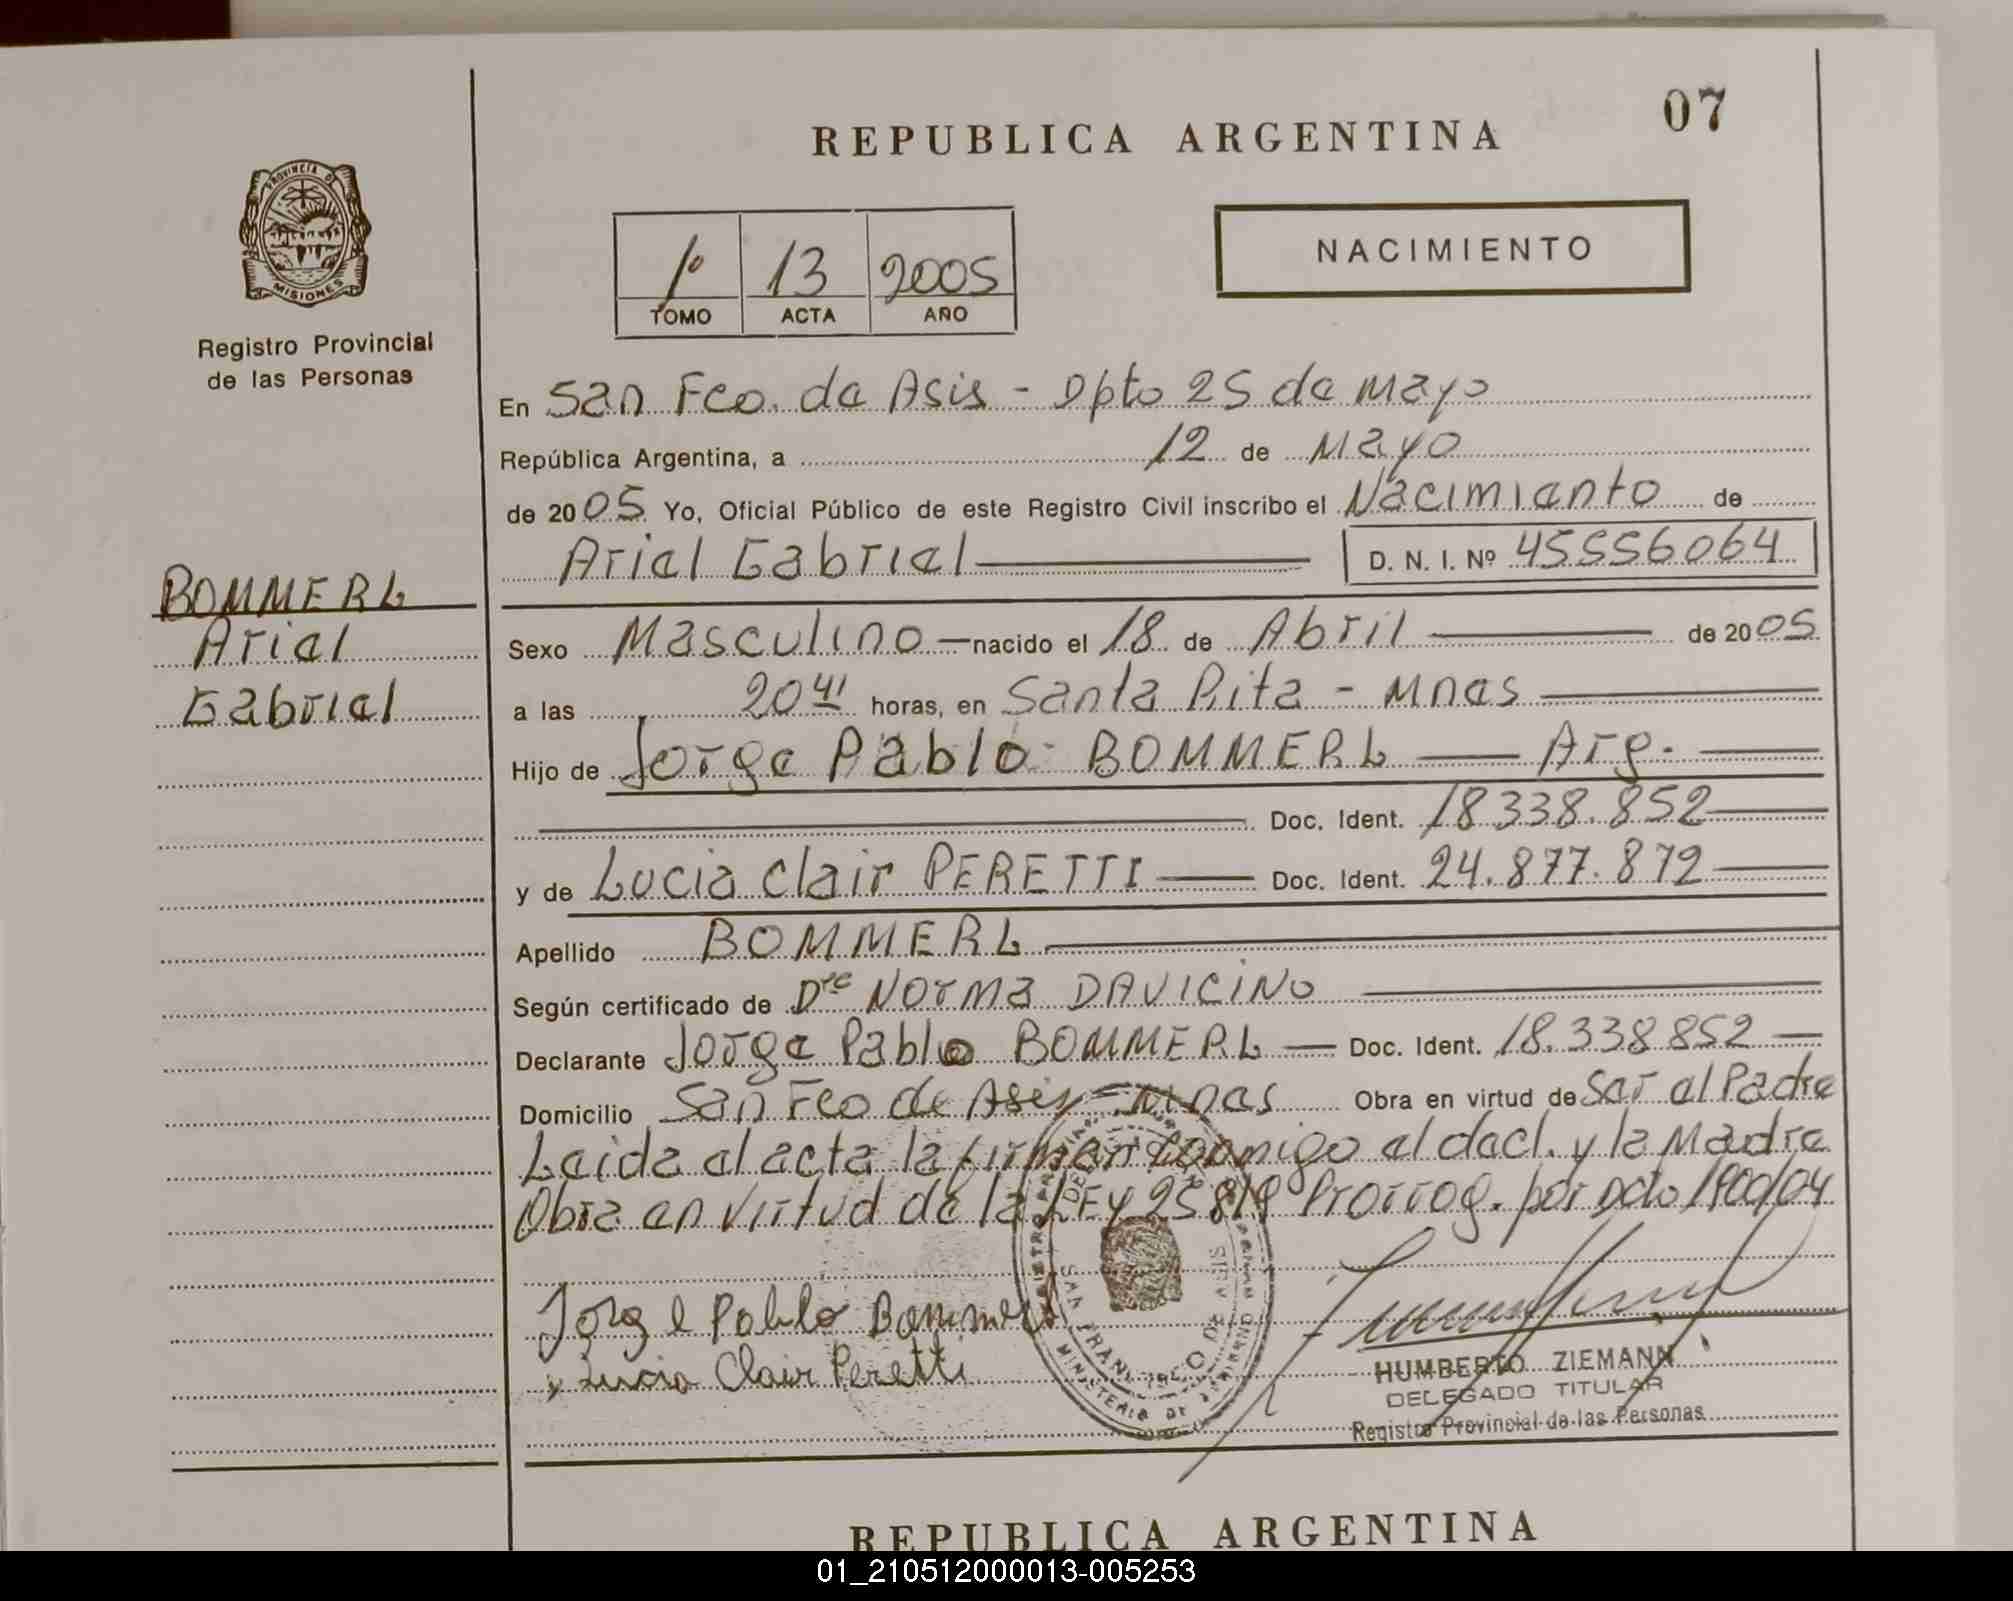 07
REPUBLICA ARGENTINA
PROVINCIA D
MISIONES
Registro Provincial
de las Personas
1º 13 2005
TOMO ACTA AÑO
NACIMIENTO
En San Fco. de Asis - Dpto 25 de Mayo
República Argentina, a 12 de Mayo
de 2005 Yo, Oficial Público de este Registro Civil inscribo el Nacimiento de
Ariel Gabriel D. N. I. Nº 45556064
BOMMERL
Ariel
Gabriel
Sexo Masculino nacido el 18 de Abril de 2005
a las 20 41 horas, en Santa Rita - Mnes
Hijo de Jorge Pablo BOMMERL Arg.
Doc. Ident. 18338.852
y de Lucia Clair PERETTI Doc. Ident. 24.877.872
Apellido BOMMERL
Según certificado de Dra NORMA DAVICINO
Declarante Jorge Pablo BOMMERL Doc. Ident. 18.338852
Domicilio San Fco de Asis - Mnes Obra en virtud de Ser el Padre
Leida el acta la firman conmigo el decl. y la Madre
Obra en virtud de la LEY 25819 Prorrog. por Dcto 1900/04
Jorge Pablo Bommerl
Lucia Clair Peretti
SAN FRANCISCO DE ASIS
MINISTERIO DE GOBIERNO
HUMBERTO ZIEMANN
DELEGADO TITULAR
Registro Provincial de las Personas
REPUBLICA ARGENTINA
01_210512000013-005253